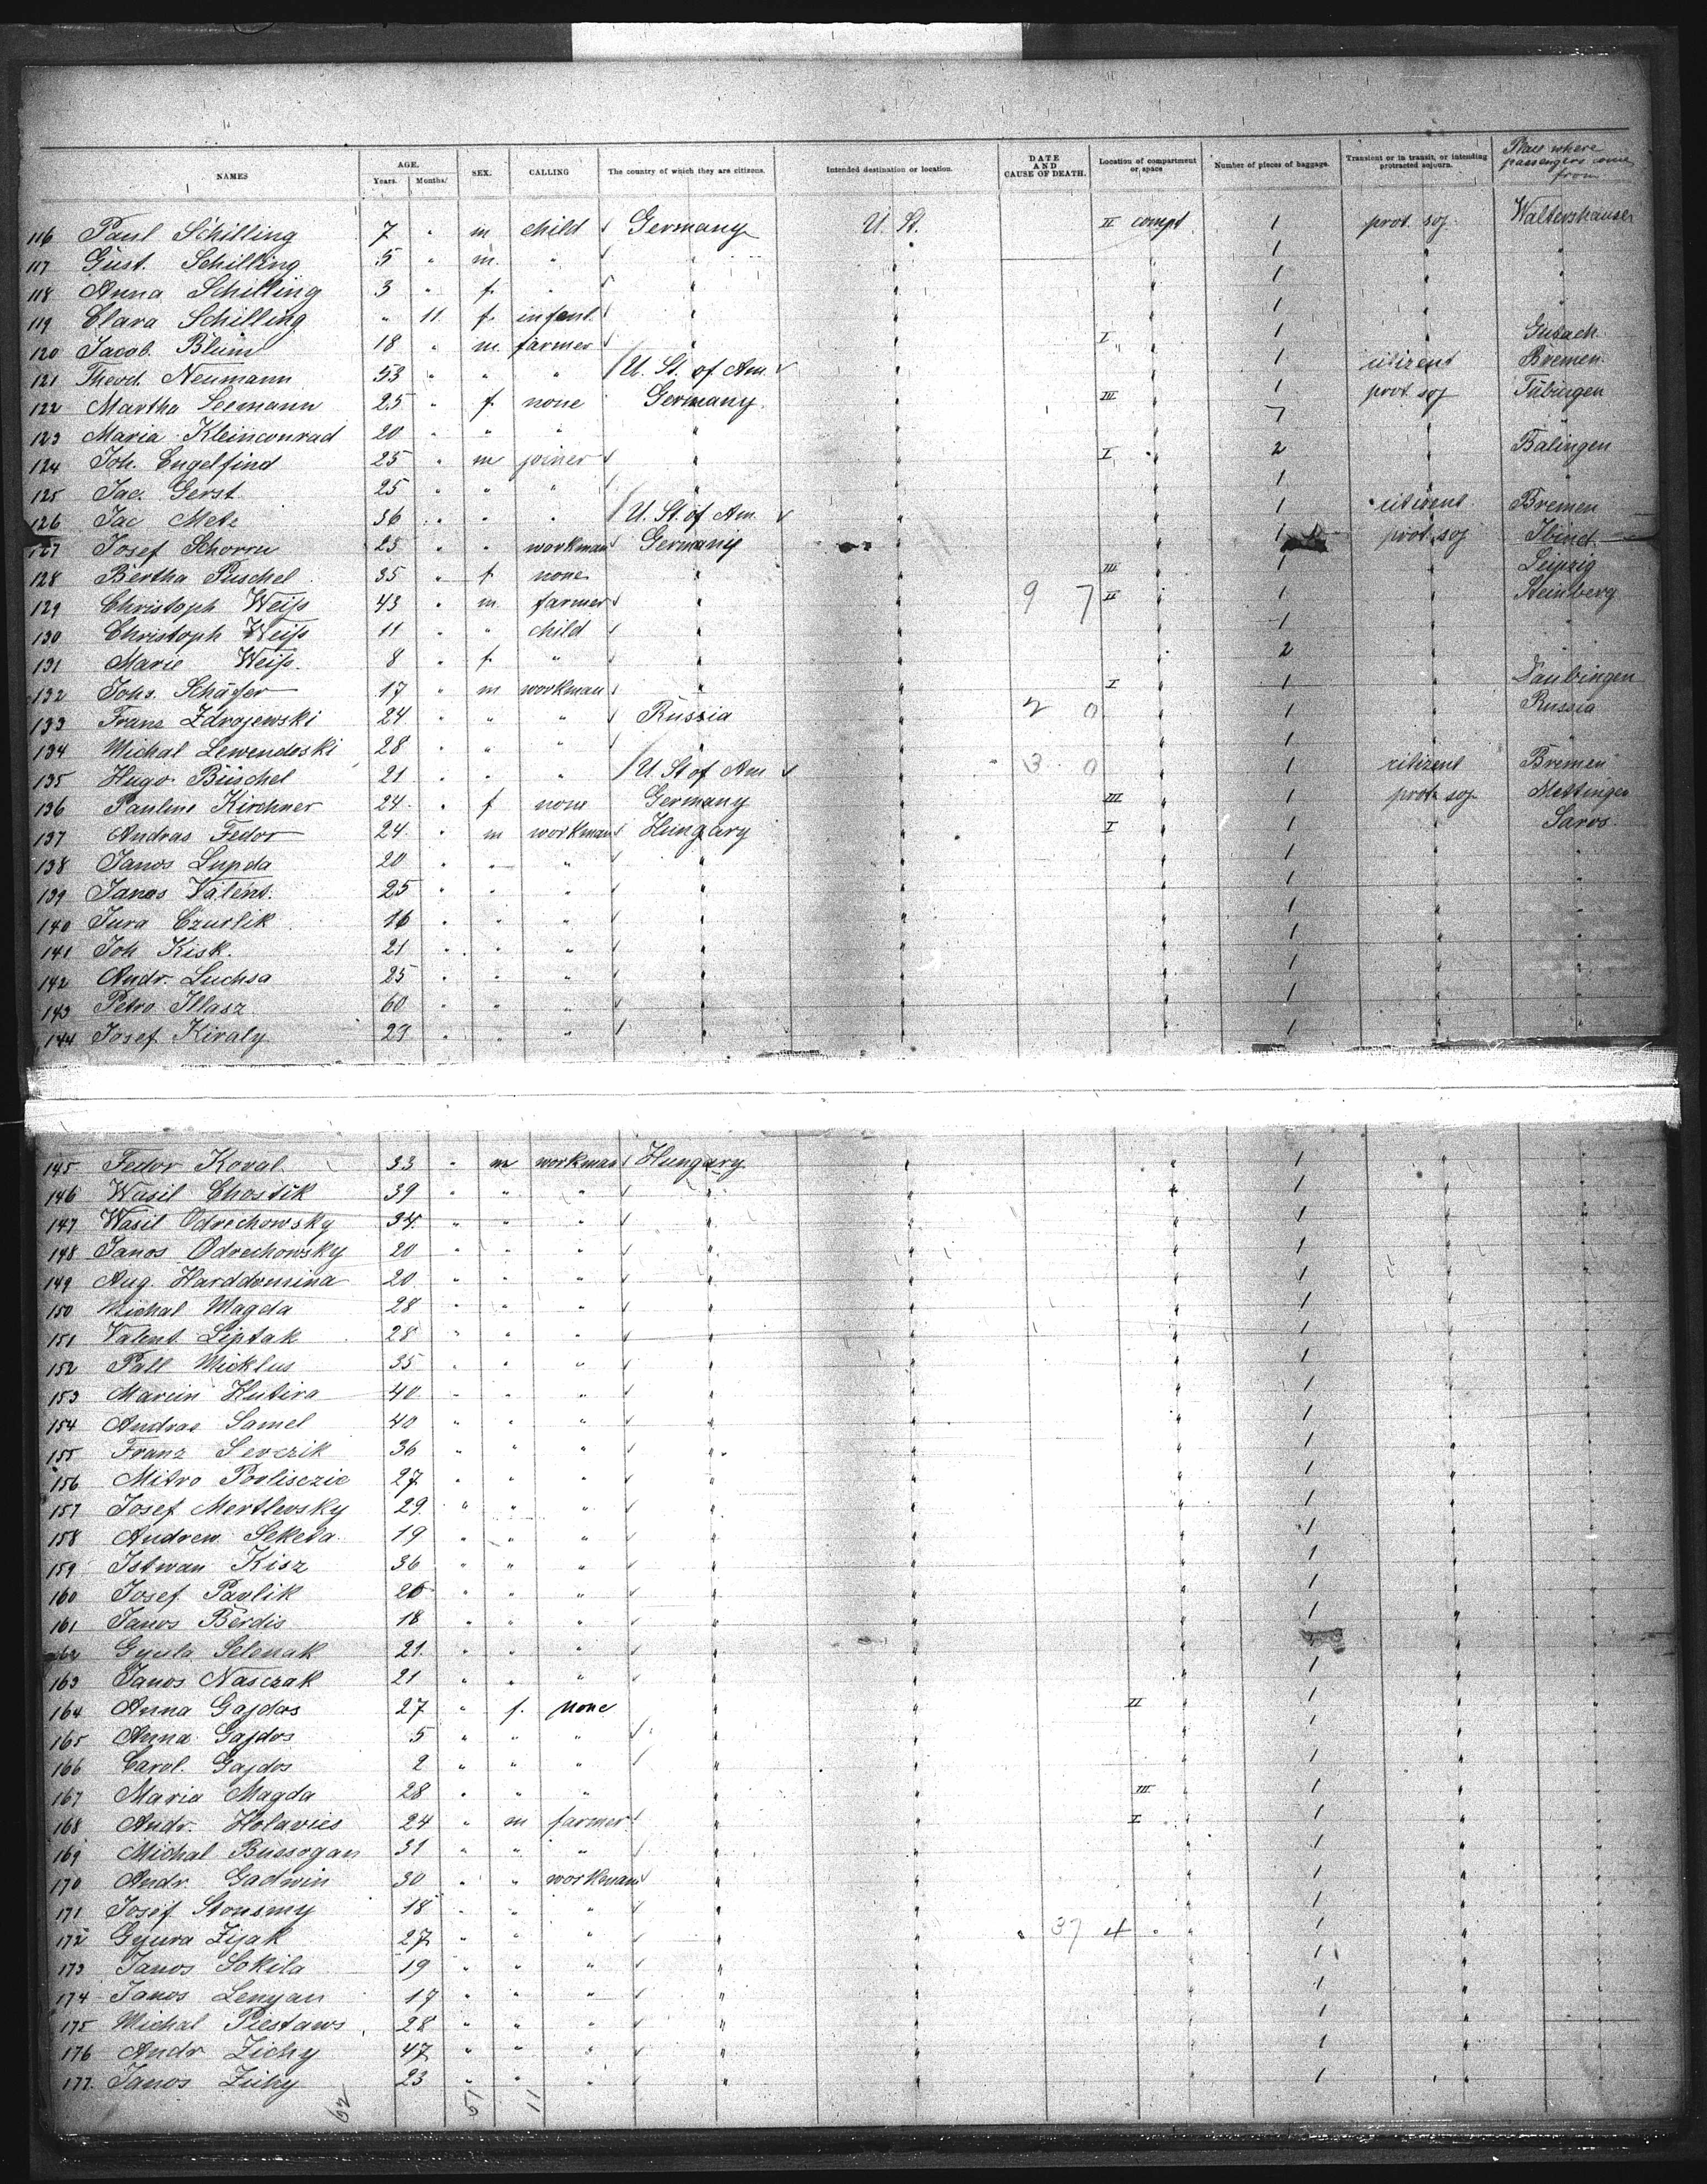 NAMES AGE. Years. Months. SEX. CALLING The country of which they are citizens. Intended destination or location. DATE AND CAUSE OF DEATH. Location of compartment or space Number of pieces of baggage. Transient or in transit, or intending protracted sojourn. Place where passengers come from
116 Paul Schilling 7 " m child √ Germany U. St. II compt 1 prot. soj.
117 Gust. Schilling 5 " m. " √ " " " 1 " "
118 Anna Schilling 3 " f. " √ " " " 1 " "
119 Clara Schilling " 11 f. infant √ " " " 1 " "
120 Jacob Blum 18 " m. farmer √ " " I " 1 "
121 Theod. Neumann 53 " " " / U. St. of Am. √ " " 1 citizent Bremen
122 Martha Seemann 25 " f. none Germany " III " 1 prot. soj Tübingen
123 Maria Kleinconrad 20 " " " " " " 7 " "
124 Joh. Engelfind 25 " m joiner √ " " I " 2 " Balingen
125 Jac. Gerst 25 " " " √ " " " 1 " "
126 Jac Metz 36 " " " / U. St. of Am √ " " 1 citizent Bremen
127 Josef Schorru 25 " " workman √ Germany " " 1 prot. soj
128 Bertha Puschel 35 " f. none " " III " 1 " Leipzig
129 Christoph Weiss 43 " m farmer √ " " 9 7 II " 1 " Steinberg
130 Christoph Weiss 11 " " child √ " " " 1 " "
131 Marie Weiss. 8 " f. " √ " " " 2 " "
132 Johs. Schäfer 17 " m workman √ " " I " 1 "
133 Franz Zdrojewski 24 " " " √ Russia " 2 0 " 1 " Russia
134 Michal Lewendoski 28 " " " √ " " " 1 " "
135 Hugo Büschel 21 " " " / U. St of Am √ " 3 0 " 1 citizent Bremen
136 Pauline Kirchner 24 " f none Germany " III " 1 prot. soj Mettingen
137 Andras Fedor 24 " m workman √ Hungary " I " 1 " Saros
138 Janos Lupda 20 " " " √ " " " 1 " "
139 Janos Valent. 25 " " " √ " " " 1 " "
140 Jura Czurlik 16 " " " √ " " " 1 " "
141 Joh Kisk. 21 " " " √ " " " 1 " "
142 Andr. Luchsa 25 " " " √ " " " 1 " "
143 Petro Illasz 60 " " " √ " " " 1 " "
144 Josef Kiraly 29 " " " √ " " " 1 " "
145 Fedor Koval 33 " m workman √ Hungary " " 1 " "
146 Wasil Chostik 39 " " " √ " " " 1 " "
147 Wasil Odrechowsky 34 " " " √ " " " 1 " "
148 Janos Odrechowsky 20 " " " √ " " " 1 " "
149 Aug. Harddomina 20 " " " √ " " " 1 " "
150 Michal Magda 28 " " " √ " " " 1 " "
151 Valent Liptak 28 " " " √ " " " 1 " "
152 Pall Micklus 35 " " " √ " " " 1 " "
153 Marcin Hutira 40 " " " √ " " " 1 " "
154 Andras Samel 40 " " " √ " " " 1 " "
155 Franz Serczik 36 " " " √ " " " 1 " "
156 Mitro Povlisczic 27 " " " √ " " " 1 " "
157 Josef Mertlevsky 29 " " " √ " " " 1 " "
158 Andrew Sekeda 19 " " " √ " " " 1 " "
159 Istwan Kisz 36 " " " √ " " " 1 " "
160 Josef Pavlik 26 " " " √ " " " 1 " "
161 Janos Berdis 18 " " " √ " " " 1 " "
162 Gyula Selenak 21 " " " √ " " " " "
163 Janos Nasczak 21 " " " √ " " " 1 " "
164 Anna Gajdos 27 " f. none " " II " 1 " "
165 Anna Gajdos 5 " " " √ " " " 1 " "
166 Carol. Gajdos 2 " " " √ " " " 1 " "
167 Maria Magda 28 " " " " " III " 1 " "
168 Andr. Holavics 24 " m farmer √ " " I " 1 " "
169 Michal Bussogan 31 " " " √ " " " 1 " "
170 Andr. Gadwin 30 " " workman √ " " " 1 " "
171 Josef Stonsmy 18 " " " √ " " " 1 " "
172 Gyura Zijak 27 " " " √ " " 37 4 " 1 " "
173 Janos Sokila 19 " " " √ " " " 1 " "
174 Janos Lenyan 17 " " " √ " " " 1 " "
175 Michal Piestaws 28 " " " √ " " " 1 " "
176 Andr Zichy 47 " " " √ " " " 1 " "
177. Janos Zichy 23 " " " √ " " " 1 " "
62 51 11